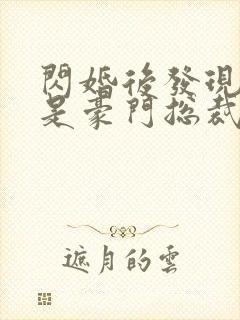 閃婚後發現
是豪門總裁
遮月的雲